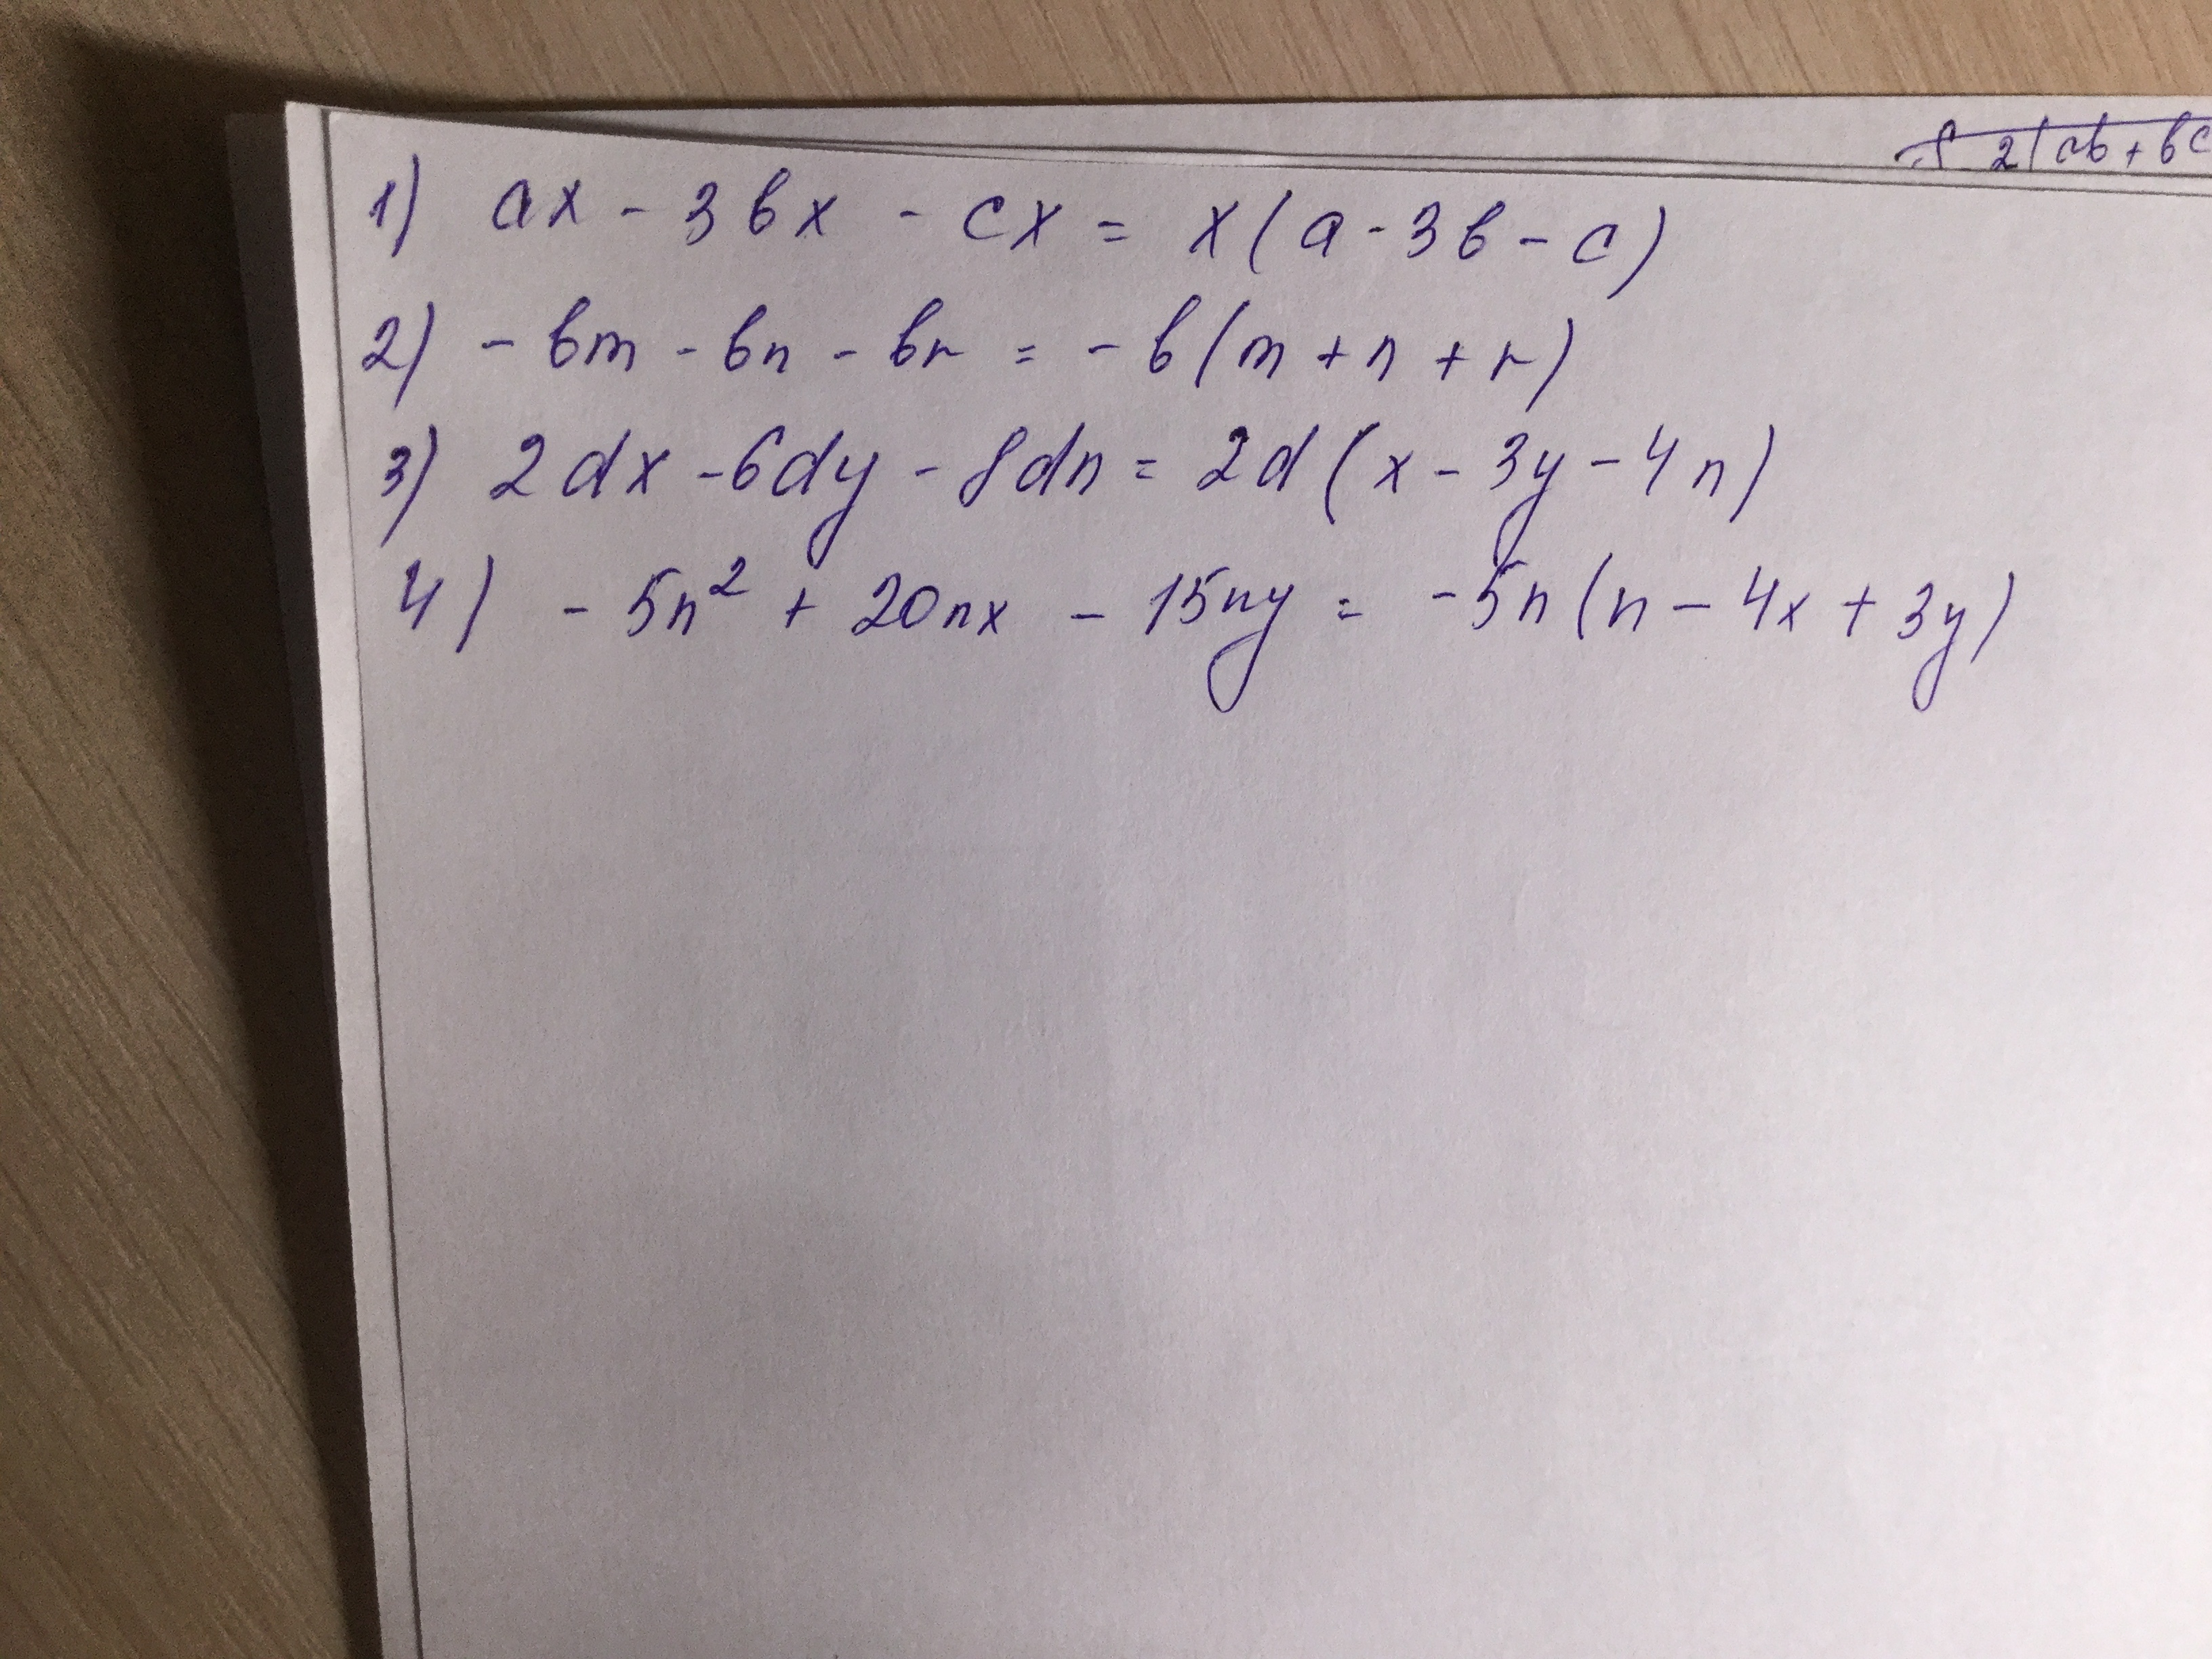 2(ab+bc
1) ax - 3bx - cx = x(a - 3b - c)
2) - bm - bn - br = - b(m + n + r)
3) 2dx - 6dy - 8dn = 2d(x - 3y - 4n)
4) - 5n² + 20nx - 15ny = -5n(n - 4x + 3y)